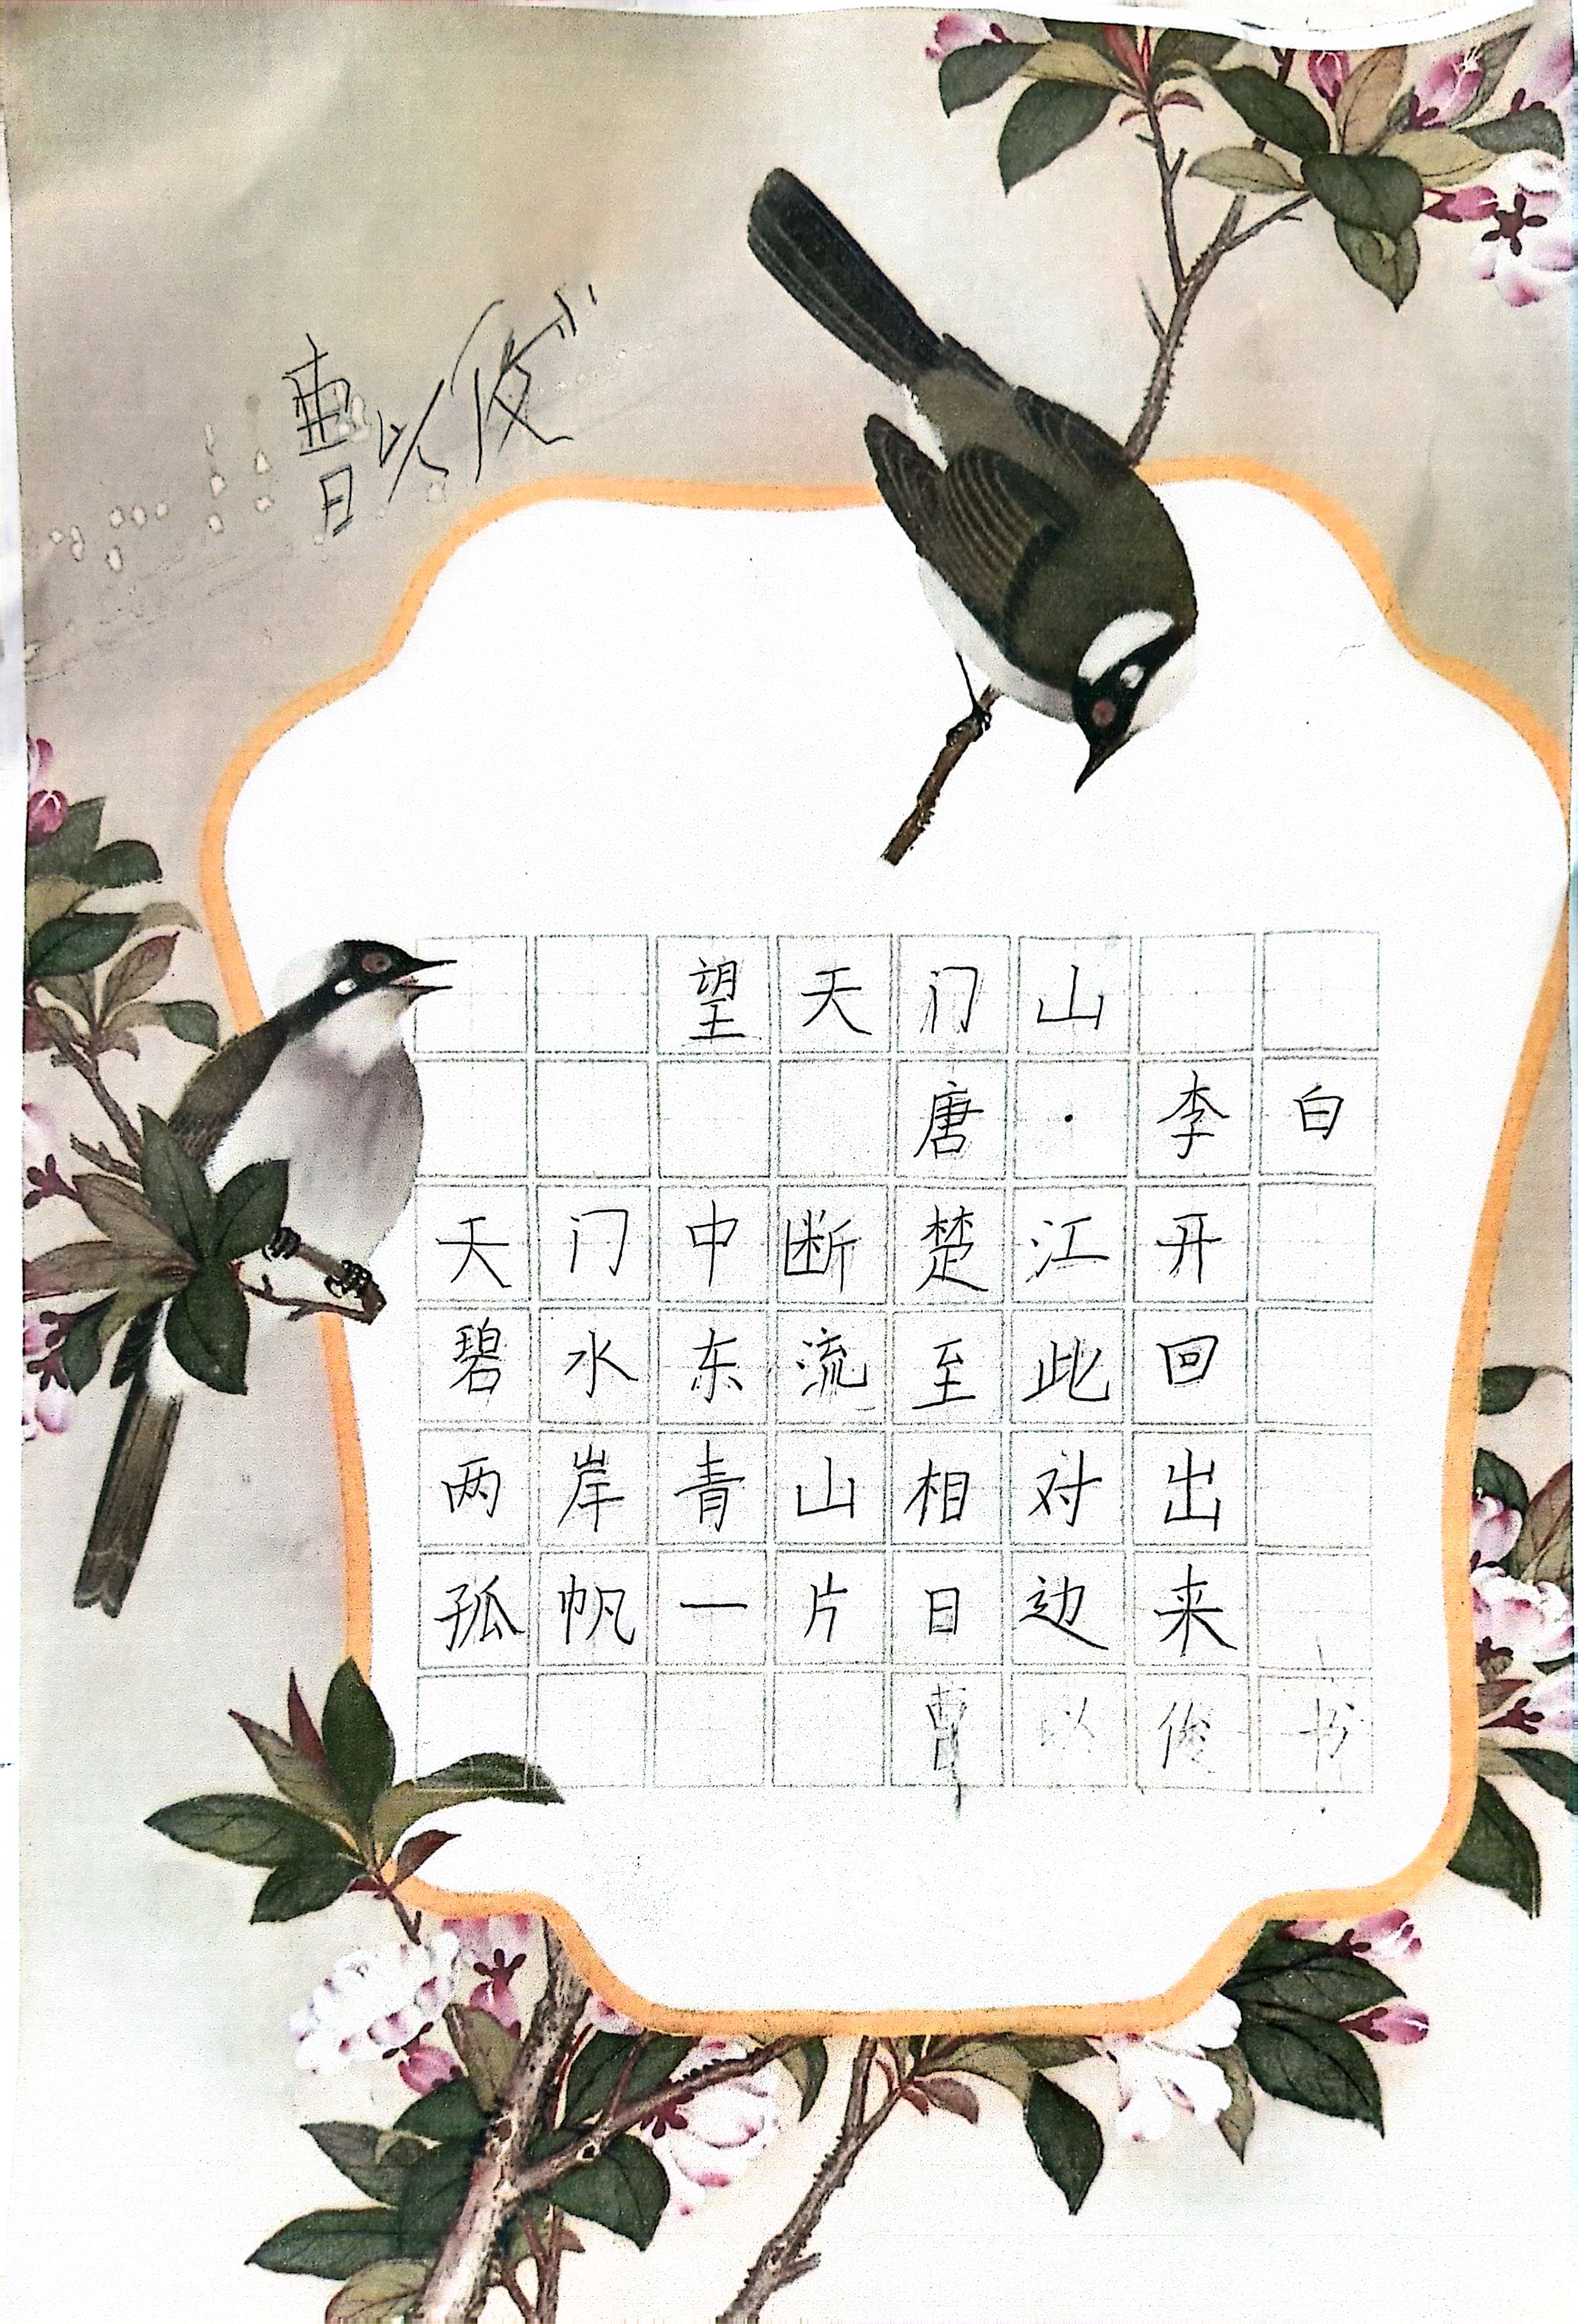 曹以俊
望天门山
唐·李白
天门中断楚江开
碧水东流至此回
两岸青山相对出
孤帆一片日边来
曹以俊书